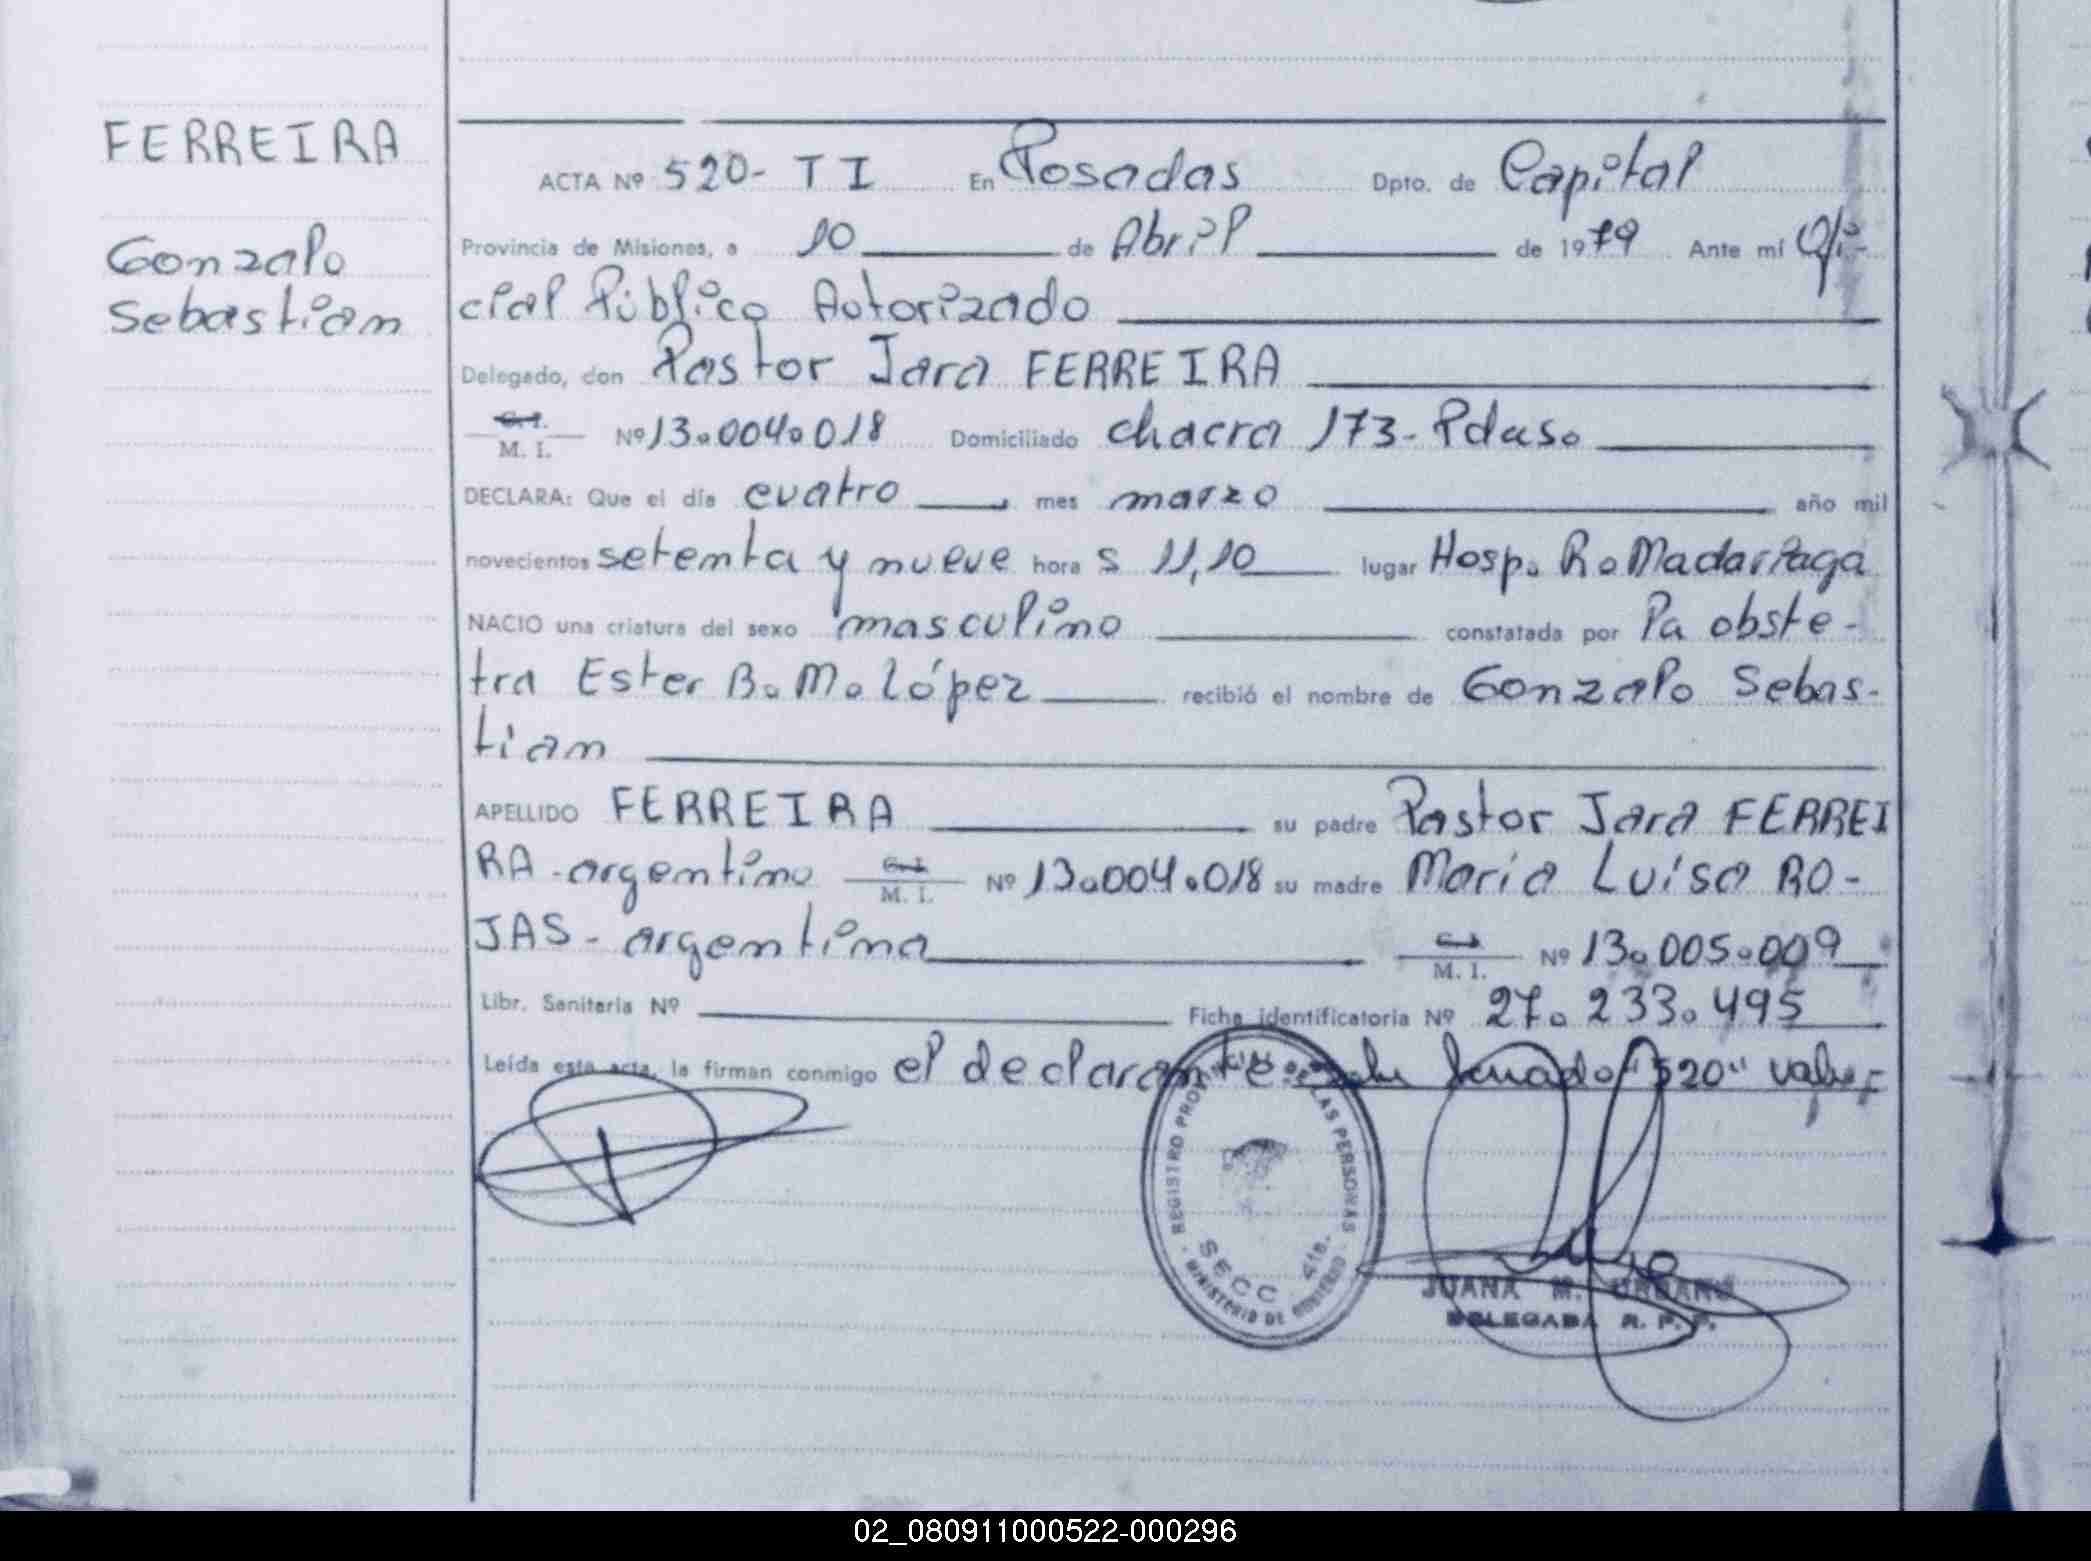 FERREIRA
Gonzalo
Sebastian
ACTA Nº 520- T I En Posadas Dpto. de Capital
Provincia de Misiones, a 10 de Abril de 1979 Ante mí Ofi-
cial Público Autorizado
Delegado, don Pastor Jara FERREIRA
C.I. M. I. Nº 13.004.018 Domiciliado chacra 173- Pdas.
DECLARA: Que el día cuatro mes marzo año mil
novecientos setenta y nueve hora s 11,10 lugar Hosp. R. Madariaga
NACIO una criatura del sexo masculino constatada por la obste-
tra Ester B. M. López recibió el nombre de Gonzalo Sebas-
tian
APELLIDO FERREIRA su padre Pastor Jara FERREI
RA - argentino C.I. M. I. Nº 13.004.018 su madre María Luisa RO-
JAS - argentina C.I. M. I. Nº 13.005.009
Libr. Sanitaria Nº Ficha identificatoria Nº 27.233.495
Leída esta acta, la firman conmigo el declarante "520" vale.-
REGISTRO PROVINCIAL DE LAS PERSONAS
SECC 418-
MINISTERIO DE GOBIERNO
JUANA M. URBANO
DELEGADA R. P. P.
02_080911000522-000296